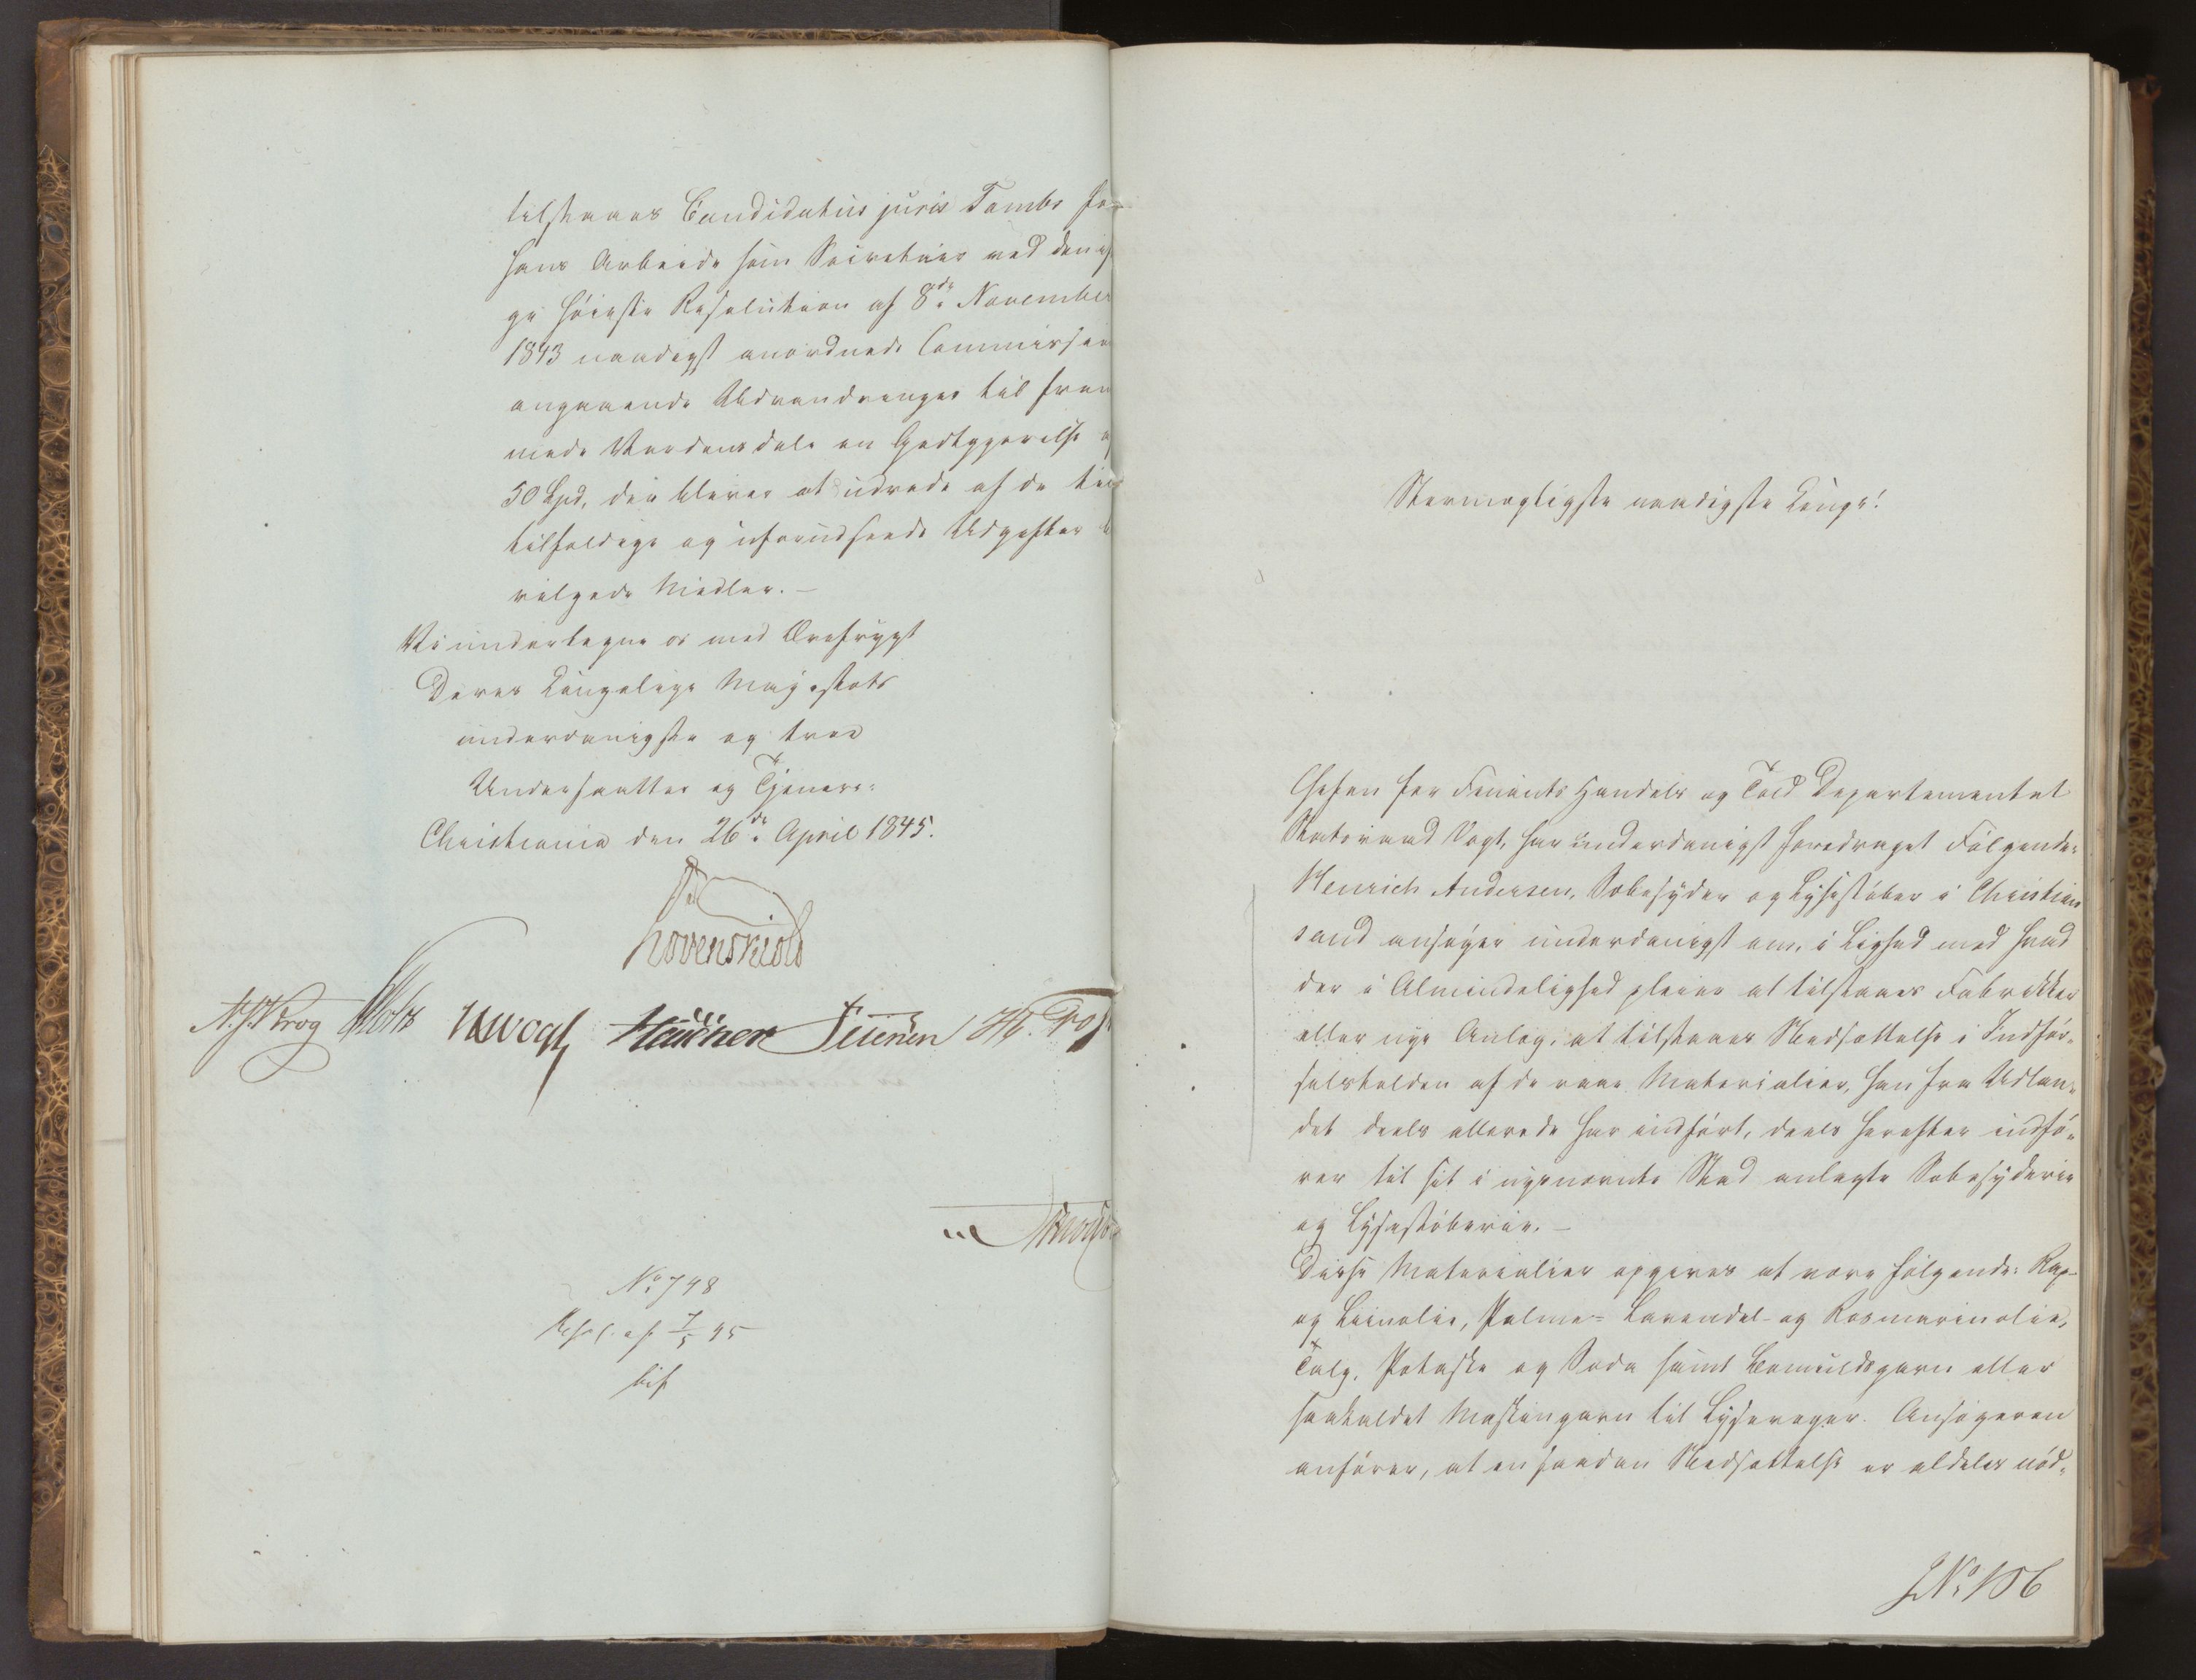 tilstaaes Candidatus juris Tambs for
hans Arbeide som Secretair ved den if
ge høieste Resolution af 8de November
1843 naadigst anordnede Commission
angaaende Udvandringer til frem
mede Verdensdele en Godtgjørelse af
50 Spd, der bliver at udrede af de til
tilfældige og uforudseede Udgifter be
vilgede Midler. –
Vi undertegne os med Ærefrygt
Deres Kongelige Majestæts
underdanigste og troe
Undersaatter og Tjenere:
Christiania den 26de April 1845.
Løvenskiold
N. J. Krog Holst JHVogt
No 748
Resol. af 7/5 45
bif
Stormægtigste naadigste Konge!
Chefen for Finants Handels og Told Departementet
Statsraad Vogt, har underdanigst foredraget Følgende:
Henrich Andersen, Sæbesyder og Lysestøber i Christian
sand ansøger underdanigst om, i Lighed med hvad
der i Almindelighed pleier at tilstaaes Fabrikker
eller nye Anlæg, at tilstaaes Nedsættelse i Indfør-
selstolden af de raae Materialier, han fra Udlan-
det deels allerede har indført, deels herefter indfø-
rer til sit i nysnævnte Stad anlagte Sæbesyderie
og Lysestøberie. –
Disse Materialier opgives at være følgende: Rap-
og Liinolie, Palme- Lavendel- og Rosmarinolie,
Talg, Potaske og Soda samt Bomuldsgarn eller
saakaldet Maskingarn til Lysevæger. Ansøgeren
anfører, at en saadan Nedsættelse er aldeles nød-
J No 106